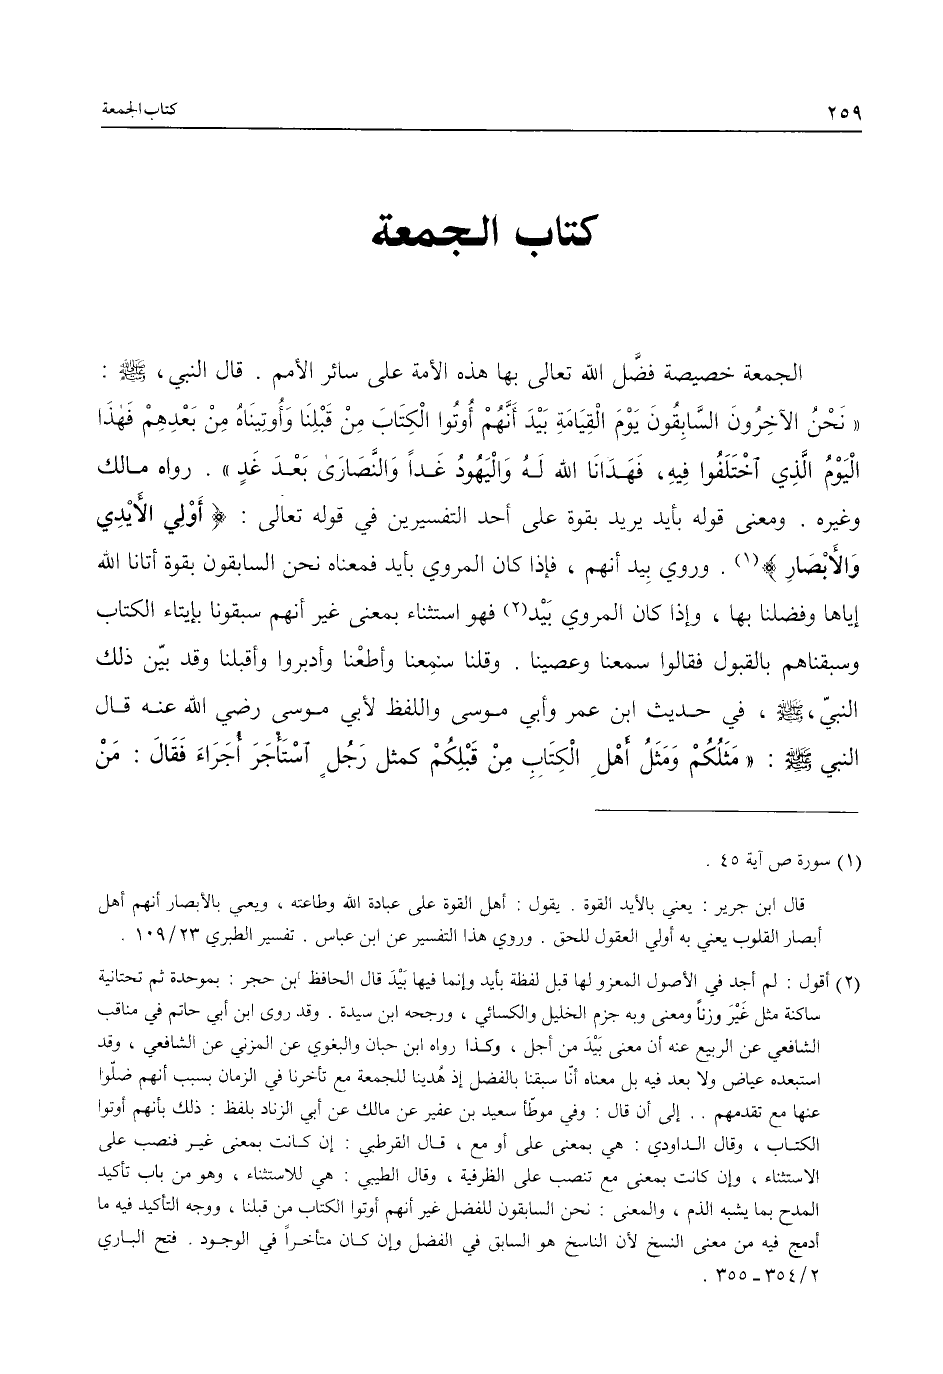 ٢٥٩
كتاب الجمعة
كتاب الجمعة
الجمعة خصيصة فضَّل الله تعالى بها هذه الأمة على سائر الأمم . قال النبي، ﷺ :
« نَحْنُ الآخِرُونَ السَّابِقُونَ يَوْمَ الْقِيَامَةِ بَيْدَ أَنَّهُمْ أُوتُوا الْكِتَابَ مِنْ قَبْلِنَا وَأُوتِينَاهُ مِنْ بَعْدِهِمْ فَهٰذَا
الْيَوْمُ الَّذِي ٱخْتَلَفُوا فِيهِ، فَهَدَانَا الله لَـهُ وَالْيَهُودُ غَـداً وَالنَّصَارَىٰ بَعْـدَ غَدٍ » . رواه مـالك
وغيره . ومعنى قوله بأيد يريد بقوة على أحد التفسيرين في قوله تعالى : ﴿ أُوْلِي الأَيْدِي
وَالأَبْصَارِ ﴾(١) . وروي بِيد أنهم ، فإذا كان المروي بأيد فمعناه نحن السابقون بقوة أتانا الله
إياها وفضلنا بها ، وإذا كان المروي بَيْد(٢) فهو استثناء بمعنى غير أنهم سبقونا بإيتاء الكتاب
وسبقناهم بالقبول فقالوا سمعنا وعصينا . وقلنا سَمِعنا وأطعْنا وأدبروا وأقبلنا وقد بيّن ذلك
النبيّ،ﷺ ، في حـديث ابن عمر وأبي مـوسى واللفظ لأبي مـوسى رضي الله عنـه قـال
النبي ﷺ : « مَثَلُكُمْ وَمَثَلُ أَهْلِ الْكِتَابِ مِنْ قَبْلِكُمْ كمثل رَجُلٍ ٱسْتَأْجَرَ أُجَرَاءَ فَقَالَ : مَنْ
(١) سورة ص آية ٤٥ .
قال ابن جرير : يعني بالأيد القوة . يقول : أهل القوة على عبادة الله وطاعته ، ويعني بالأبصار أنهم أهل
أبصار القلوب يعني به أولي العقول للحق . وروي هذا التفسير عن ابن عباس . تفسير الطبري ٢٣/١٠٩ .
(٢) أقول : لم أجد في الأصول المعزو لها قبل لفظة بأيد وإنما فيها بَيْدَ قال الحافظ ابن حجر : بموحدة ثم تحتانية
ساكنة مثل غَيْرَ وزناً ومعنى وبه جزم الخليل والكسائي ، ورجحه ابن سيدة . وقد روى ابن أبي حاتم في مناقب
الشافعي عن الربيع عنه أن معنى بَيْدَ من أجل ، وكـذا رواه ابن حبان والبغوي عن المزني عن الشافعي ، وقد
استبعده عياض ولا بعد فيه بل معناه أنّا سبقنا بالفضل إذ هُدينا للجمعة مع تأخرنا في الزمان بسبب أنهم ضلّوا
عنها مع تقدمهم .. إلى أن قال : وفي موطّأ سعيد بن عفير عن مالك عن أبي الزناد بلفظ : ذلك بأنهم أوتوا
الكتـاب ، وقال الـداودي : هي بمعنى على أو مع ، قـال القرطبي : إن كـانت بمعنى غيـر فنصب على
الاستثناء ، وإن كانت بمعنى مع تنصب على الظرفية ، وقال الطيبي : هي للاستثناء ، وهو من باب تأكيد
المدح بما يشبه الذم ، والمعنى : نحن السابقون للفضل غير أنهم أوتوا الكتاب من قبلنا ، ووجه التأكيد فيه ما
أدمج فيه من معنى النسخ لأن الناسخ هو السابق في الفضل وإن كـان متأخـراً في الوجـود . فتح البـاري
٢/٣٥٤ ـ ٣٥٥ .